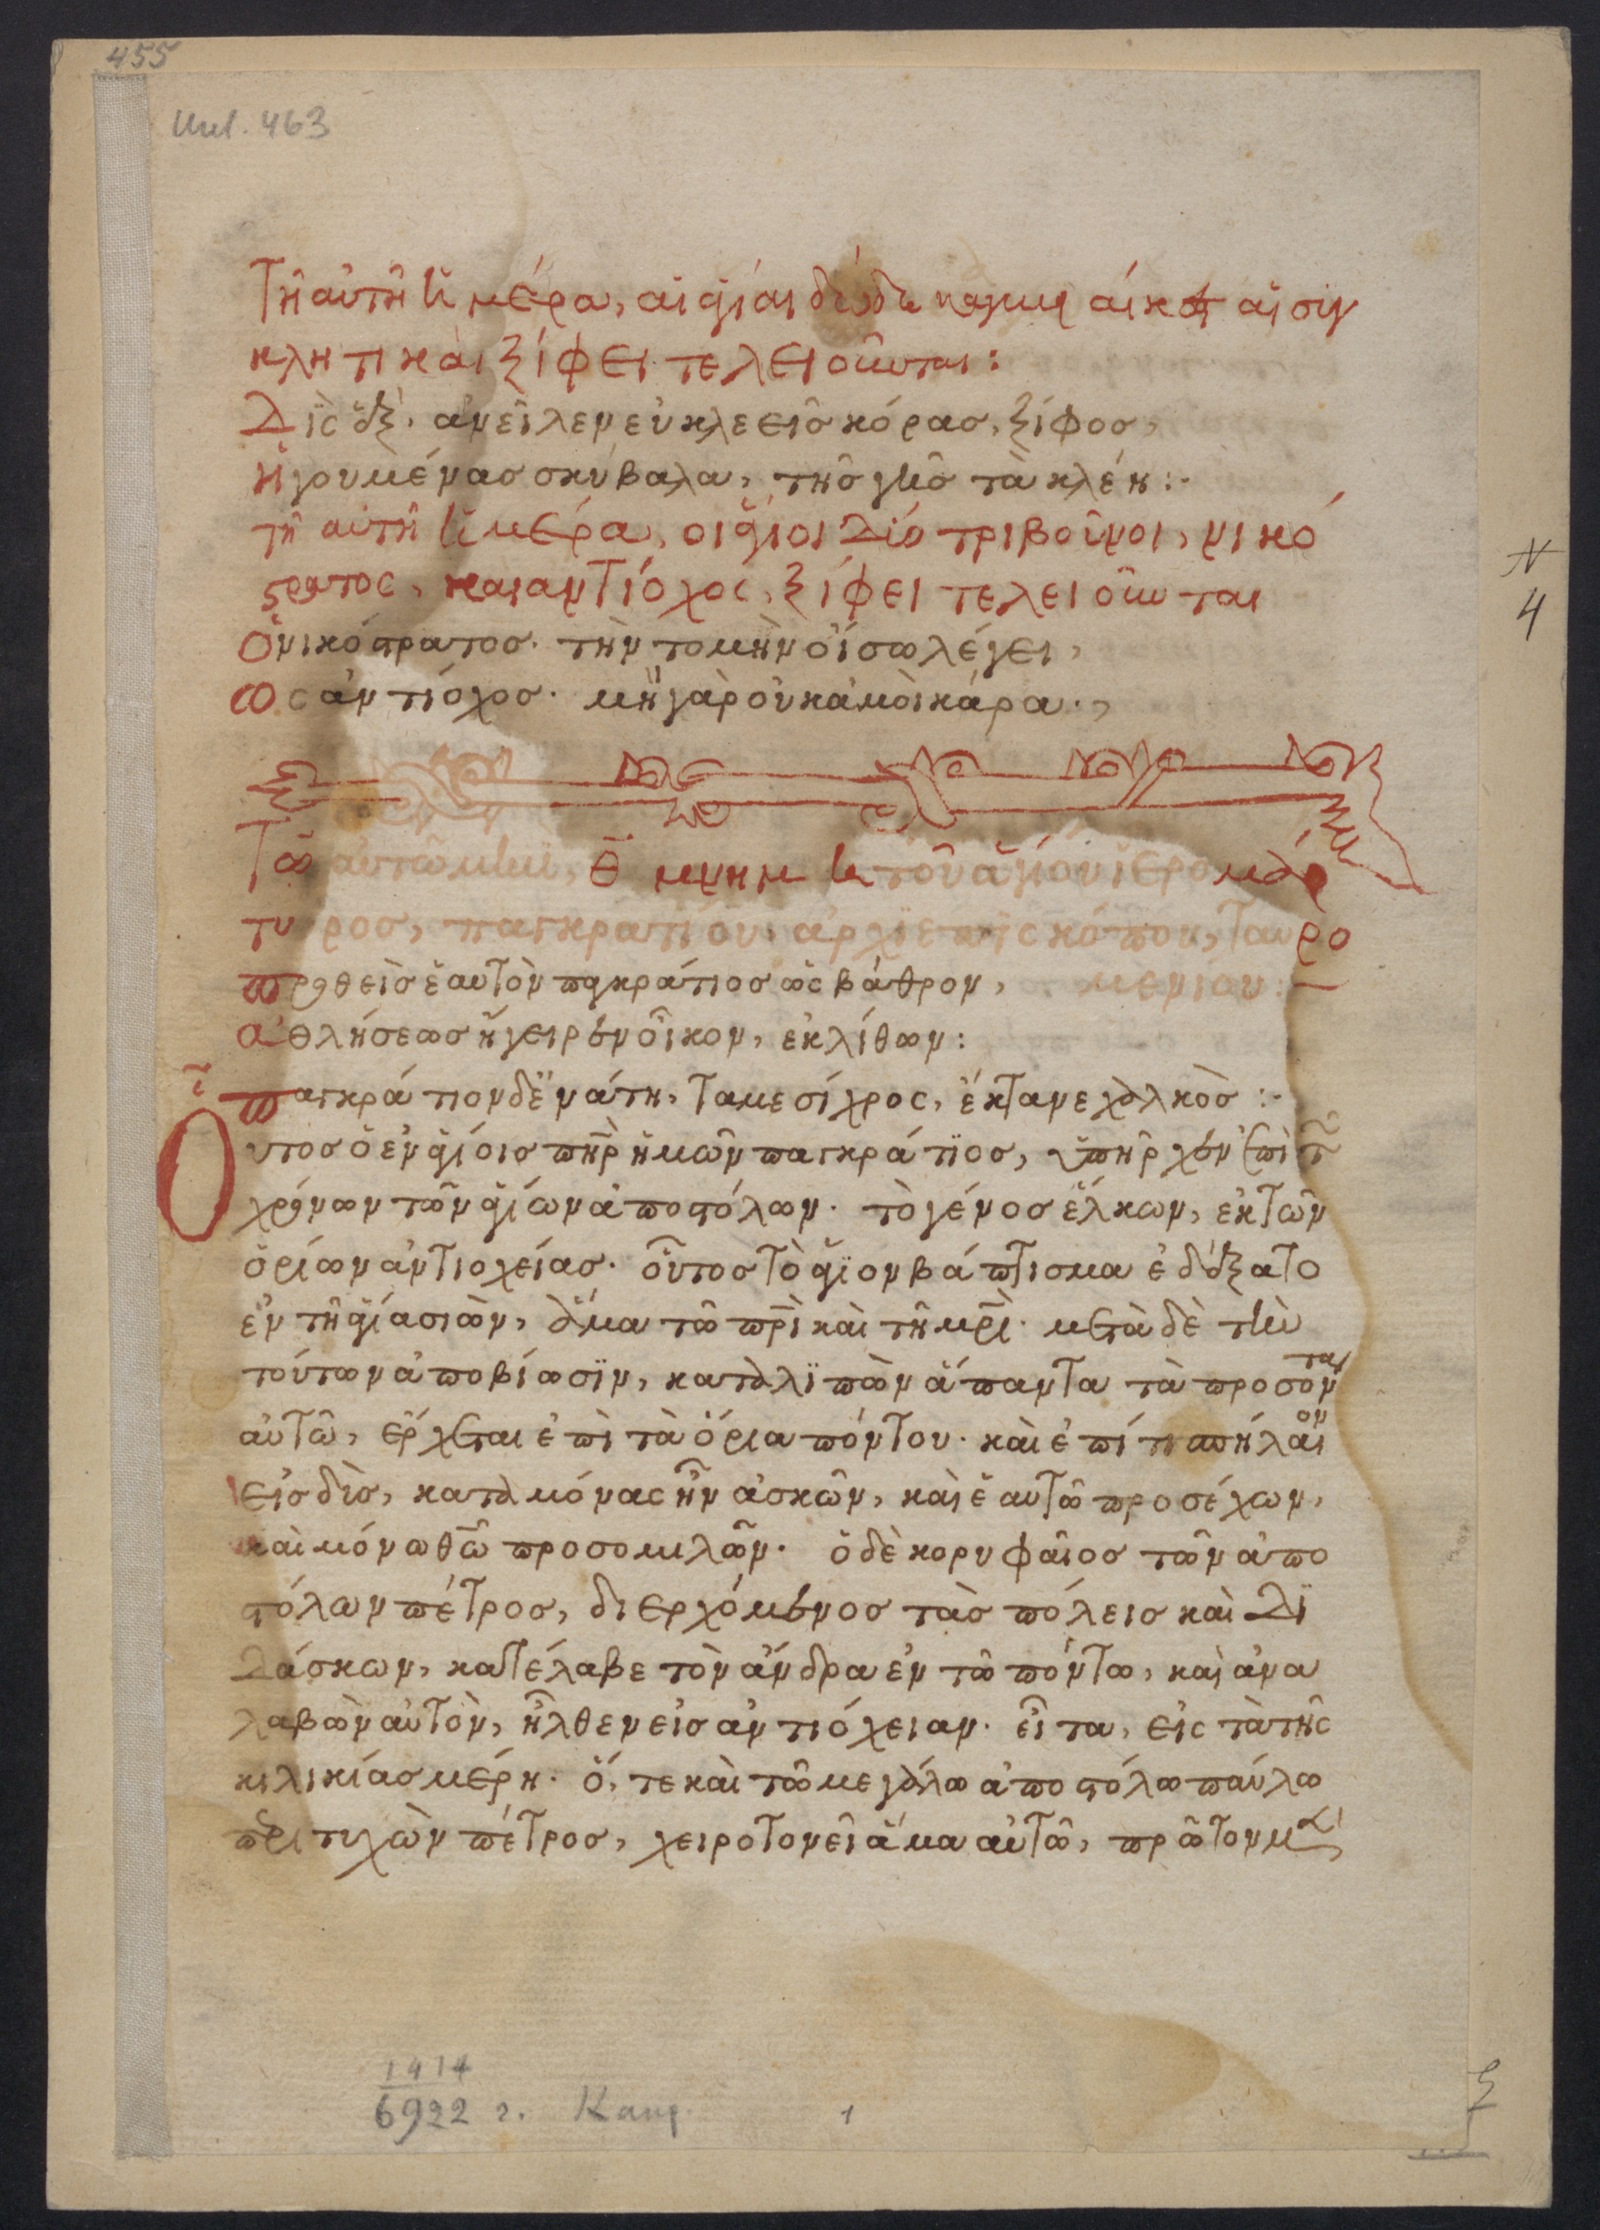 455
Инв. 463
Τῆ αὐτῆ ἡμέρα, αἱ ἅγιαι δώδεκα γυναῖκες αἱ συγ
κλητικαὶ ξίφει τελειοῦνται:
Δὶς ἓξ, ἀνεῖλεν εὐκλεεῖς κόρας, ξίφος,
ἡγουμένας σκύβαλα, τῆς γῆς τὰ κλέη:-
τῆ αὐτῆ ἡμέρα, οἱ ἅγιοι δύο τριβοῦνοι, νικό
στρατος, καὶ ἀντίοχος, ξίφει τελειοῦνται
ὁ νικόστρατος. τὴν τομὴν οἴσω λέγει,
ὡς ἀντίοχος. μὴ γὰρ οὐκ ἀμοὶ κάρα.,
Τῶ αὐτῶ μηνὶ, θ μνήμη τοῦ ἁγίου ἱερομάρ
τυρος, παγκρατίου ἀρχιεπισκόπου, ταυρο
μενίου:-
πρηθεὶς ἑαυτὸν παγκράτιος ὡς βάθρον,
ἀθλήσεως ἤγειρεν οἶκον, ἐκ λίθων:
παγκράτιον δ' ἐνάτη, ταμεσίχρος, ἔκτανε χαλκὸς:-
Οὗτος ὁ ἐν ἁγίοις πὴρ ἡμῶν παγκράτιος, ὑπῆρχεν ἐπὶ τῶν
χρόνων τῶν ἁγίων ἀποστόλων. τὸ γένος ἕλκων, ἐκ τῶν
ὁρίων ἀντιοχείας. οὗτος τὸ ἅγιον βάπτισμα ἐδέξατο
ἐν τῆ ἁγία σιὼν, ἅμα τῶ πρὶ καὶ τῆ μρὶ. μετὰ δὲ τὴν
τούτων ἀποβίωσιν, καταλιπὼν ἅπαντα τὰ προσόντα
αὐτῶ, ἔρχεται ἐπὶ τὰ ὅρια πόντου. καὶ ἐπί τι σπήλαιον
εἰσδὺς, κατὰ μόνας ἦν ἀσκῶν, καὶ ἑαυτῶ προσέχων,
καὶ μόνω θῶ προσομιλῶν. ὁ δὲ κορυφαῖος τῶν ἀπο
στόλων πέτρος, διερχόμενος τὰς πόλεις καὶ δι
δάσκων, κατέλαβε τὸν ἄνδρα ἐν τῶ πόντω, καὶ ἀνα
λαβὼν αὐτὸν, ἦλθεν εἰς ἀντιόχειαν. εἶτα, εἰς τὰ τῆς
κιλικίας μέρη. ὅ, τε καὶ τῶ μεγάλω ἀποστόλω παύλω
περιτυχὼν πέτρος, χειροτονεῖ ἅμα αὐτῶ, πρῶτον μὲν
1414
6922 г.
1
N
4